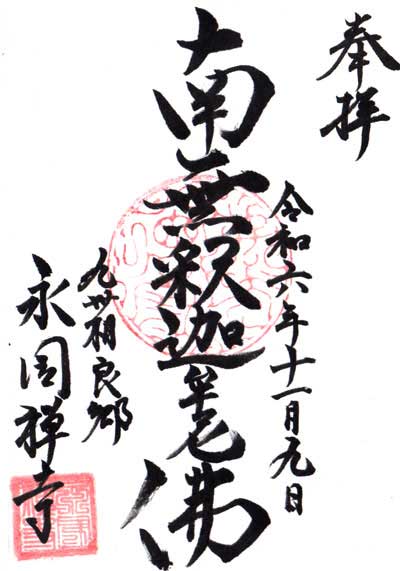 奉拝
令和六年十一月九日
南無釈迦牟尼佛
九州相良郷
永国禅寺